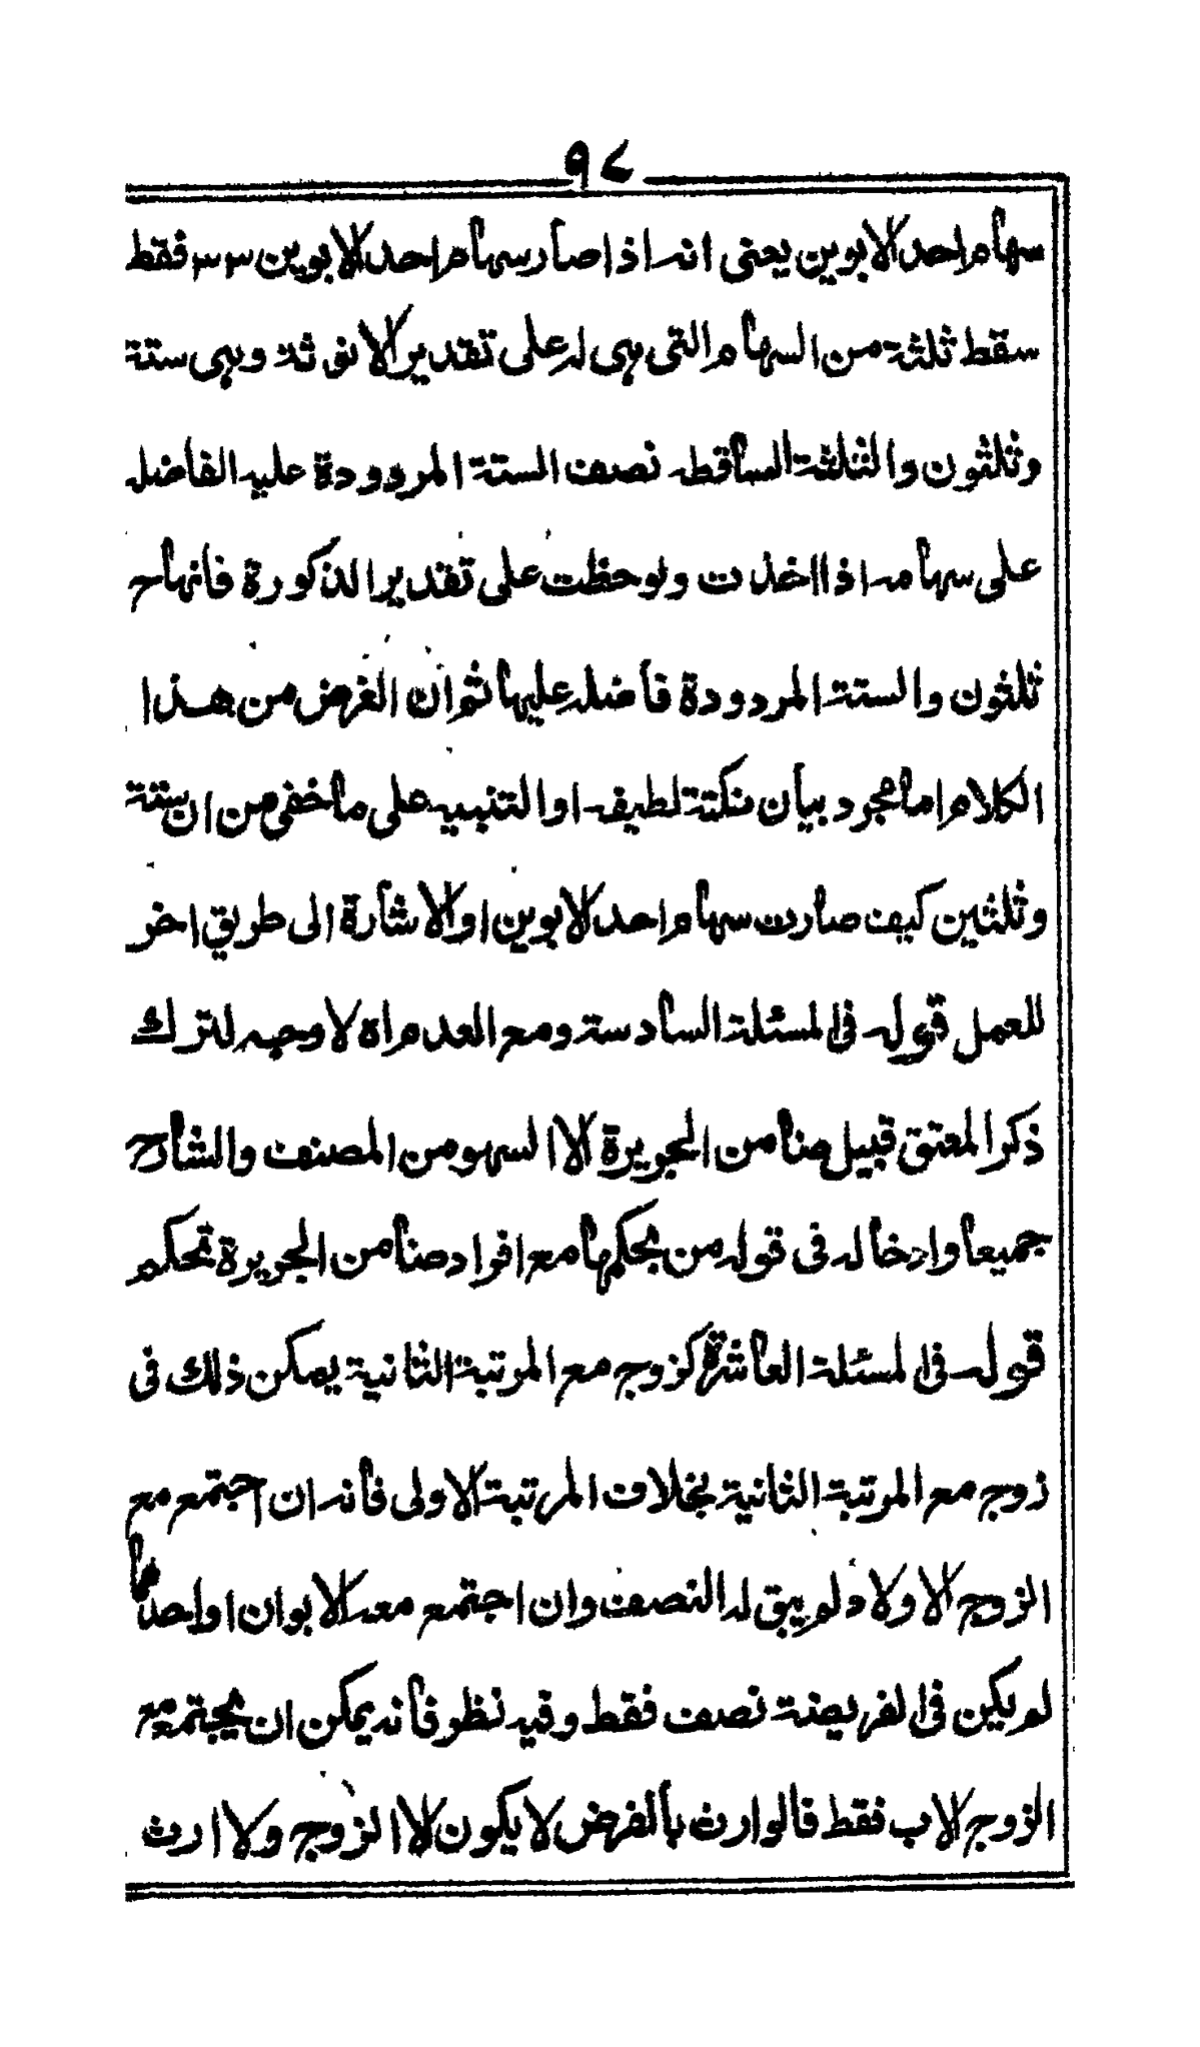 ٩٤
سهام احد الابوين يعنى انه اذا صار سهام احد الابوين ٣٣ فقط
سقط ثلثة من السهام التى هى له على تقدير الانوثة وهى ستة
وثلثون والثلثة الساقطه نصف الستة المردودة عليه الفاضل
على سهامه اذا اخذت ولوحظت على تقدير الذكورة فانها ح
ثلثون والستة المردودة فاضله عليها ثم ان الغرض من هذا
الكلام اما مجرد بيان نكتة لطيفه او التنبيه على ما خفى من ان ستة
وثلثين كيف صارت سهام احد الابوين او الاشارة الى طريق اخر
للعمل قوله فى المسئلة السادسة ومع العدم اه لا وجه لترك
ذكر المعتق قبيل ضامن الجريرة الا السهو من المصنف والشارح
جميعا وادخاله فى قوله من بحكمها مع افراد ضامن الجريرة تحكم
قوله فى المسئلة العاشرة كزوج مع المرتبة الثانية يمكن ذلك فى
زوج مع المرتبة الثانية بخلاف المرتبة الاولى فانه ان اجتمع مع
الزوج الاولاد لم يبق له النصف وان اجتمع معه الابوان او احدهما
لم يكن فى الفريضة نصف فقط وفيه نظر فانه يمكن ان يجتمع مع
الزوج الاب فقط فالوارث بالفرض لا يكون الا الزوج ولا ارث